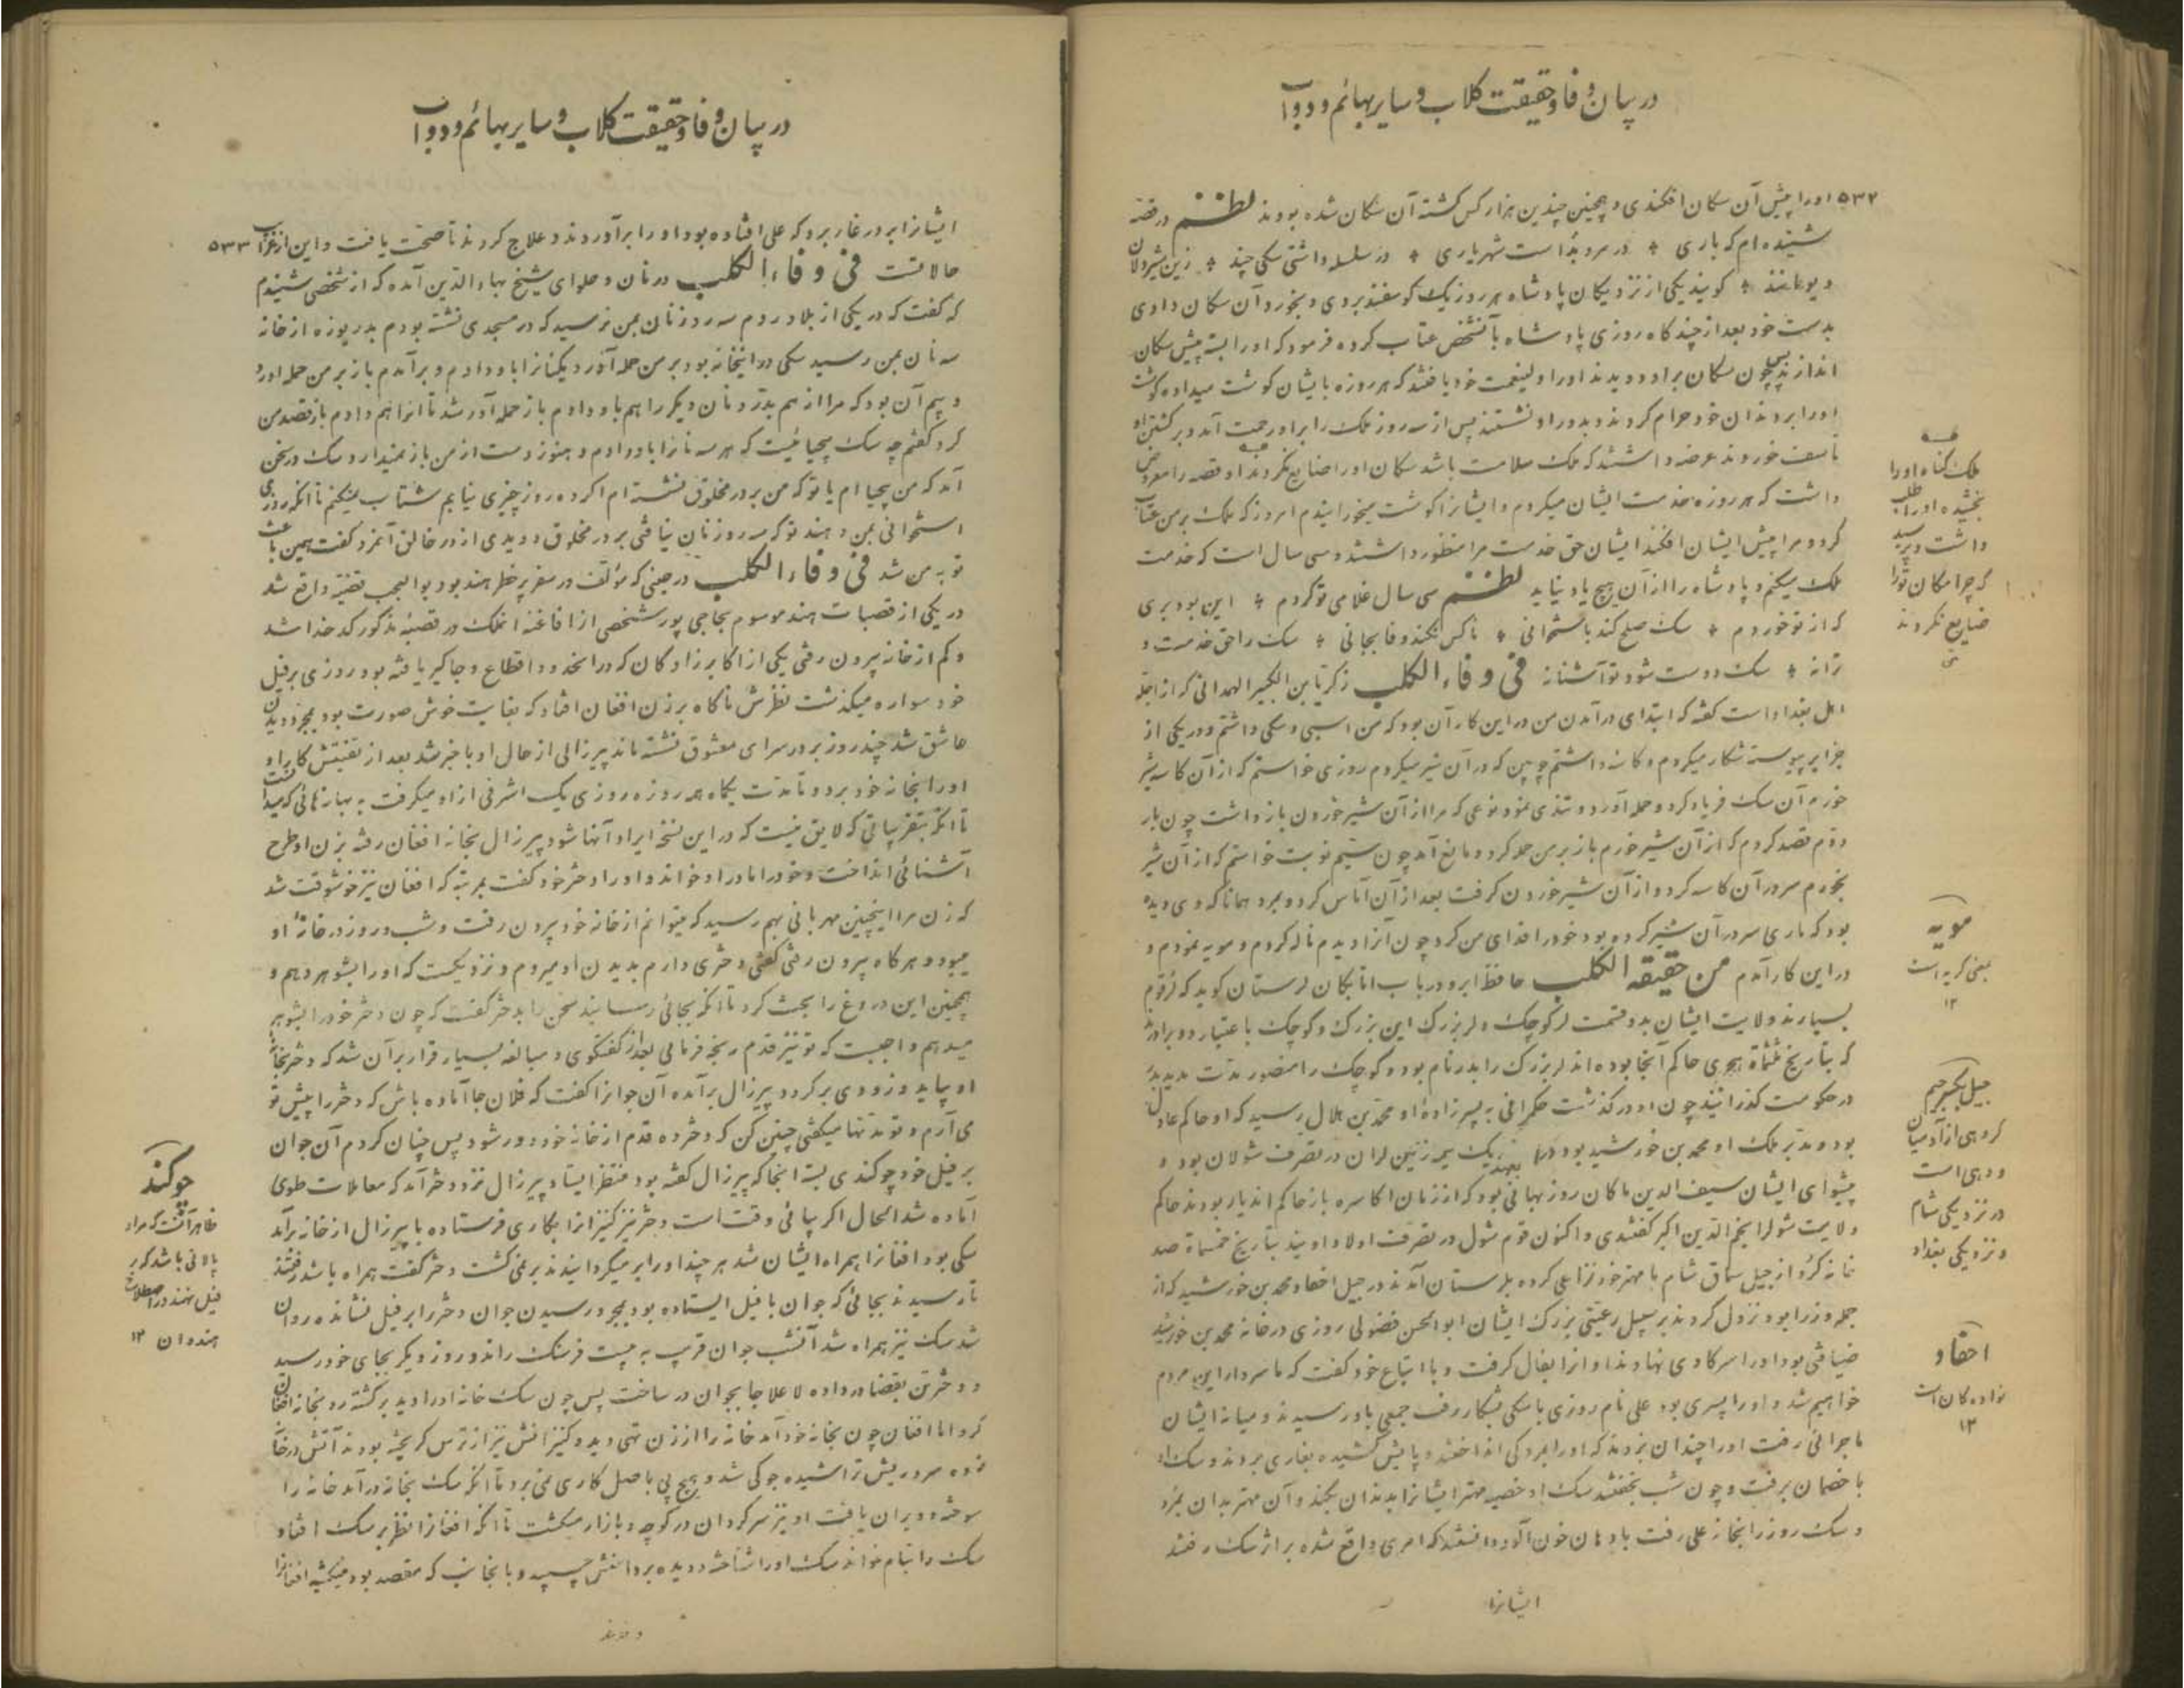 در بیان وفا و حقیقت کلاب و سایر بهائم و دواب
۵۳۲ اورا پیش آن سکان افکندی و همچنین چندین هزار کس کشته آن سکان شده بودند نظم در قصه
شنیده‌ام که باری در مرو بدا است شهریاری در سلسله داشتی سکی چند زین شیردلان
دیو مانند کویند یکی از نزدیکان پادشاه هر روز یک کوسفند بردی و بخورد آن سکان دادی
بدست خود بعد از چند کاه روزی پادشاه با آنشخص عتاب کرده فرمود که اورا بسته پیش سکان
اندازند پس چون سکان بر او دویدند اورا ولینعمت خود یافتند که هر روزه بایشان کوشت میداده کوشت
اورا بر دندان خود حرام کردند و بدور او نشستند پس از سه روز ملک را بر او رحمت آمد و بر کشتن او
تاسف خورد عرضه داشتند که ملک سلامت باشد سکان اورا ضایع نکردند او قصه را معروض
داشت که هر روزه خدمت ایشان میکردم و ایشانرا کوشت میخورانیدم امروز که ملک بر من عتاب
کرد و مرا پیش ایشان افکند ایشان حق خدمت مرا منظور داشتند و سی سال است که خدمت
ملک میکنم و پادشاه را از آن هیچ یاد نیاید نظم سی سال غلامی تو کردم این بود بری
که از تو خوردم سک صلح کند باستخوانی ناکس نکند وفا بجانی سک را حق خدمت و
ترانه سک دوست شود تو آشنانه فی وفاء الکلب زکریا بن الکبیر الهمدانی که از اجله
اهل بغداد است کفته که ابتدای در آمدن من در این کار آن بود که من اسبی و سکی داشتم و در یکی از
جزایر پیوسته شکار میکردم و کاسه داشتم چوبین که در آن شیر میکردم روزی خواستم که از آن کاسه شیر
خورم آن سک فریاد کرد و حمله آورد و تندی نمود نوعی که مرا از آن شیر خوردن باز داشت چون بار
دوم قصد کردم که از آن شیر خورم باز بر من حمله کرد و مانع آمد چون سیم نوبت خواستم که از آن شیر
بخورم سر در آن کاسه کرد و از آن شیر خوردن کرفت بعد از آن آماس کرد و بمرد همانا که وی دیده
بود که ماری سر در آن شیر کرده بود خود را فدای من کرد چون آنرا دیدم ناله کردم و مویه نمودم و
در این کار آمدم من حقیقه الکلب حافظ ابرو در باب اتابکان لرستان کوید که لر قوم
بسیارند ولایت ایشان بدو قسمت لر کوچک و لر بزرک این بزرک و کوچک باعتبار دو برادرند
که بتاریخ ثلثمأة هجری حاکم آنجا بوده‌اند لر بزرک را بدر نام بود و کوچک را منصور مدت مدید
در حکومت کذرانیدند چون او در کذشت حکمرانی به پسرزاده او محمد بن هلال رسید که او حاکم عادل
بود و مدبر ملک او محمد بن خورشید بود و یک نیمه زمین لران در تصرف شولان بود و
پیشوای ایشان سیف الدین ماکان روزبهانی بود که از زمان اکاسره باز حاکم اندیار بودند حاکم
ولایت شولرا نجم الدین اکبر کفتندی و اکنون قوم شول در تصرف اولاد اویند بتاریخ خمسمأة صد
خانه کرد از جبل سماق شام با مهتر خود بلرستان آمدند در جبل احفاد محمد بن خورشید که از
جمله وزرا بود نزول کردند بر سبیل رعیتی بزرک ایشان ابوالحسن فضلوئی روزی در خانه محمد بن خورشید
ضیافتی بود اورا سر کاوی نهادند او آنرا بفال کرفت و با اتباع خود کفت که ما سردار این مردم
خواهیم شد و اورا پسری بود علی نام روزی با سکی بشکار رفت جمعی باو رسیدند و میانه ایشان
ماجرائی رفت اورا چندان بزدند که اورا بمردکی انداختند و پایش کشیده بغاری بردند و سک او
با خصمان برفت و چون شب بخفتند سک او خصیه مهتر ایشانرا بدندان بکند و آن مهتر بدان بمرد
و سک روز را بخانه علی رفت با دهان خون آلود دانستند که امری واقع شده بر اثر سک رفتند
ایشانرا
ملک کناه اورا
بخشیده اورا طلب
داشت و پرسید
که چرا سکان تورا
ضایع نکردند
مویه
بمعنی کریه است
۱۲
جیل بکسر جیم
کروهی از آدمیان
و دهی است
در نزدیکی شام
و نزدیکی بغداد
احفاد
نواده‌کان است
۱۲
در بیان وفا و حقیقت کلاب و سایر بهائم و دواب
ایشانرا بر در غار برد که علی افتاده بود اورا برآوردند و علاج کردند تا صحت یافت و این از غرایب ۵۳۳
حالاتست فی وفاء الکلب در نان و حلوای شیخ بهاء الدین آمده که از شخصی شنیدم
که کفت که در یکی از بلاد روم سه روز نان بمن نرسید که در مسجدی نشسته بودم بدریوزه از خانه
سه نان بمن رسید سکی در آنخانه بود بر من حمله آورد یکنانرا باو دادم و برآمدم باز بر من حمله آورد
و بیم آن بود که مرا از هم بدرد نان دیکر را هم باو دادم باز حمله آور شد تا آنرا هم دادم باز قصد من
کرد کفتم چه سک بیحیائیست که هر سه نانرا باو دادم و هنوز دست از من باز نمیدارد سک در سخن
آمد که من بیحیا ام یا تو که من بر در مخلوق نشسته‌ام اکر ده روز چیزی نیابم شتاب نمیکنم تا آنکه روزی
استخوانی بمن دهند تو که سه روز نان نیافتی بر در مخلوق دویدی از در خالق آنمرد کفت همین باعث
توبه من شد فی وفاء الکلب در حینی که مؤلف در سفر پر خطر هند بود بوالعجب قضیه واقع شد
در یکی از قصبات هند موسوم بحاجی پور شخصی از افاغنه آنملک در قصبه مذکور کدخدا شد
و کم از خانه بیرون رفتی یکی از اکابرزادکان که در آنحدود اقطاع و جاکیر یافته بود روزی بر فیل
خود سواره میکذشت نظرش ناکاه بر زن افغان افتاد که بغایت خوش صورت بود بمجرد دیدن
عاشق شد چند روز بر در سرای معشوق نشسته ماند پیرزالی از حال او با خبر شد بعد از تفتیش کار او
اورا بخانه خود برد و تا مدت یکماه هر روزه روزی یک اشرفی از او میکرفت به بهانه‌هائی که میدانست
تا آنکه بتقریباتی که لایق نیست که در این نسخه ایراد آنها شود پیرزال بخانه افغان رفته بزن او طرح
آشنائی انداخت و خود را مادر او خواند و او را دختر خود کفت بمرتبه که افغان نیز خوشوقت شد
که زن مرا اینچنین مهربانی بهم رسید که میتوانم از خانه خود بیرون رفت و شب و روز در خانه او
میبود و هرکاه بیرون رفتی کفتی دختری دارم بدیدن او میروم و نزدیکست که اورا بشوهر دهم و
همچنین این دروغ را بحث کرد تا آنکه بجائی رسانید سخن را بدختر کفت که چون دختر خود را بشوهر
میدهم واجبست که تو نیز قدم رنجه فرمائی بعد از کفتکوی و مبالغه بسیار قرار بر آن شد که دختر بخانه
او بیاید و زودی بر کردد پیرزال برآمده آن جوانرا کفت که فلان جا آماده باش که دختر را پیش تو
می‌آرم و تو مدتها میکفتی چنین کن که دختر ده قدم از خانه خود دور شود پس چنان کردم آن جوان
بر فیل خود چوکندی بست آنجا که پیرزال کفته بود منتظر ایستاد پیرزال نزد دختر آمد که معاملات طوی
آماده شد الحال اکر بیائی وقت است دختر نیز کنیزانرا بکاری فرستاده با پیرزال از خانه برآمد
سکی بود افغانرا همراه ایشان شد هر چند اورا بر میکردانیدند بر نمی کشت دختر کفت همراه باشد رفتند
تا رسیدند بجائی که جوان با فیل ایستاده بود بمجرد رسیدن جوان دختر را بر فیل نشانده روان
شد سک نیز همراه شد آنشب جوان قریب به بیست فرسنک راند و روز دیکر بجای خود رسید
و دختر تن بقضا در داده لا علاجا بجوان در ساخت پس چون سک خانه اورا دید برکشته رو بخانه افغان
کرد اما افغان چون بخانه خود آمد خانه را از زن تهی دید و کنیزانش نیز از ترس کریخته بودند آتش در خانه
زده سر و ریش تراشیده جوکی شد و هیچ پی باصل کاری نمی برد تا آنکه سک بخانه در آمد خانه را
سوخته و ویران یافت او نیز سرکردان در کوچه و بازار میکشت تا آنکه افغانرا نظر بر سک افتاد
سک را بنام خواند سک اورا شناخته دویده بر دامنش چسبید و بآنجانب که مقصد بود میکشید افغانرا
چوکند
ظاهر آنست که مراد
پالانی باشد که بر
فیل نهند در اصطلاح
هندوان ۱۲